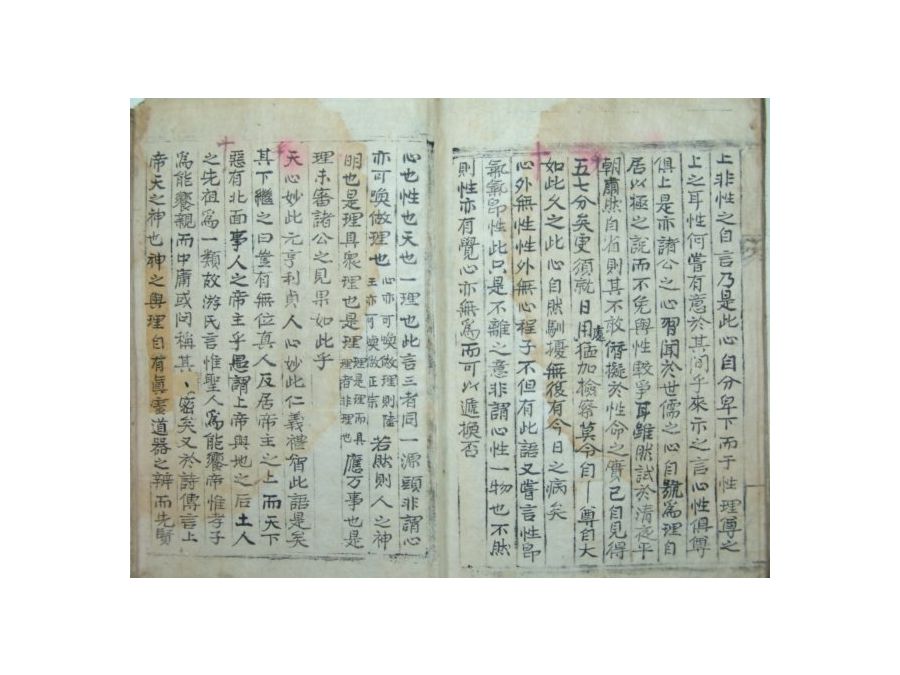 上非性之自言乃是此心自分卑下而于性理傳之
上之耳性何嘗有意於其間乎來示之言心性俱傳
俱上是亦諸公之心習聞於世儒之心自號爲理自
居以極之說而不免與性較爭耳雖然試於清夜平
朝肅然自省則其不敢儕擬於性命之實已自見得
五七分矣更須就日用處猛加檢察莫令自尊自大
如此久之此心自然馴擾無復有今日之病矣
心外無性性外無心程子不但有此語又嘗言性卽
氣氣卽性此只是不離之意非謂心性一物也不然
則性亦有覺心亦無爲而可以遞換否
心也性也天也一理也此言三者同一源頭非謂心
亦可喚做理也心亦可喚做理則陸王亦可喚做正宗若然則人之神
明也是理具衆理也是理理是理而具理者非理也應万事也是
理未審諸公之見果如此乎
天心妙此元亨利貞人心妙此仁義禮智此語是矣
其下繼之曰豈有無位眞人反居帝主之上而天下
惡有北面事人之帝主乎愚謂上帝與地之后土人
之先祖爲一類故游氏言惟聖人爲能饗帝惟孝子
爲能饗親而中庸或問稱其密矣又於詩傳言上
帝天之神也神之與理自有眞道器之辨而先賢